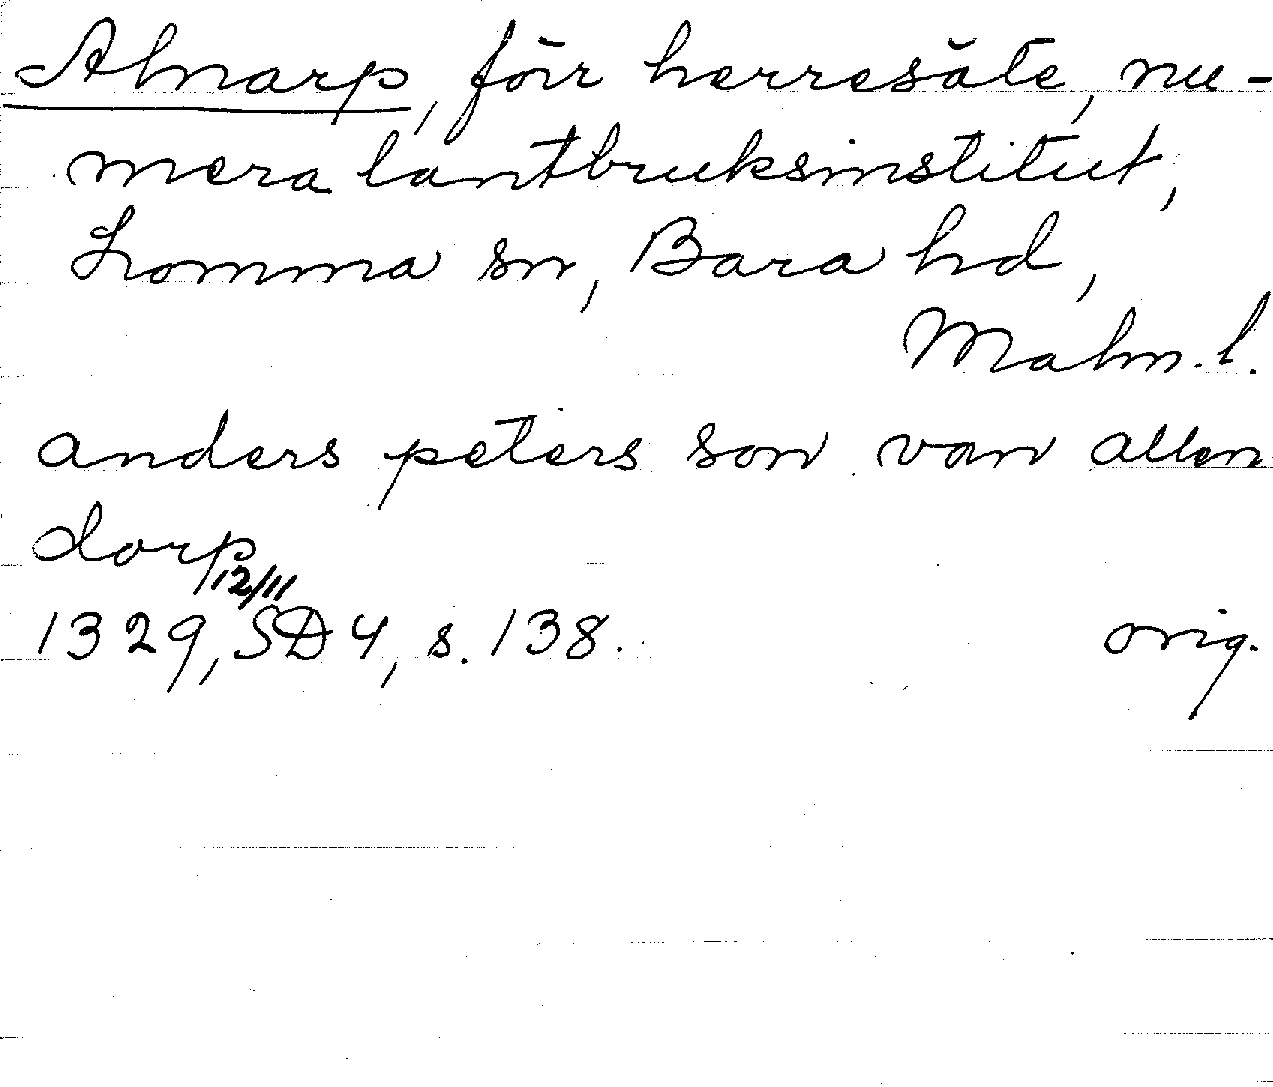 Alnarp, förr herresäte, nu-
mera lantbruksinstitut,
Lomma sn, Bara hd,
Malm. l.
anders peters son van allen
dorp
12/11
1329, SD 4, s. 138. orig.